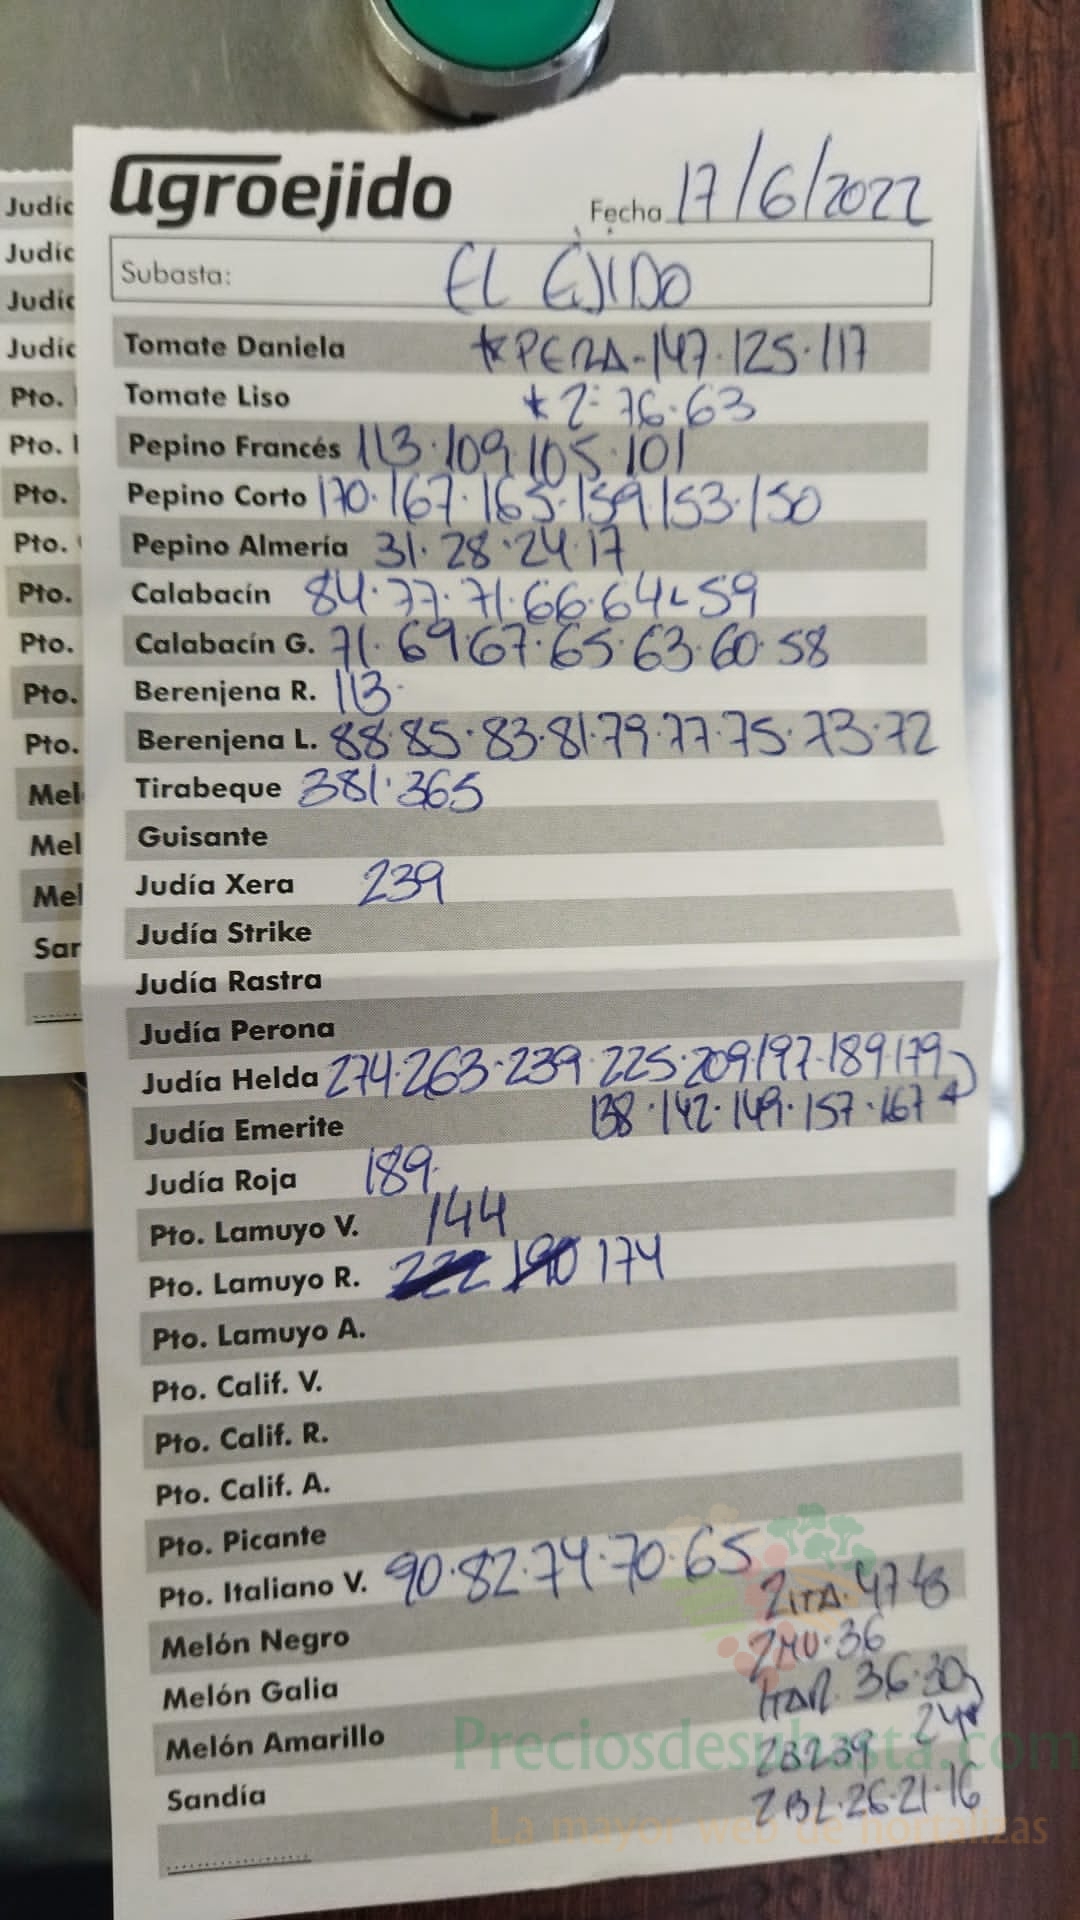 agroejido Fecha 17/6/2022
Subasta: EL EJIDO
Tomate Daniela *PERA-147·125·117
Tomate Liso *2ª 76·63
Pepino Francés 113·109·105·101
Pepino Corto 170·167·165·159·153·150
Pepino Almería 31·28·24·17
Calabacín 84·77·71·66·64·59
Calabacín G. 71·69·67·65·63·60·58
Berenjena R. 113·
Berenjena L. 88·85·83·81·79·77·75·73·72
Tirabeque 381·365
Guisante
Judía Xera 239
Judía Strike
Judía Rastra
Judía Perona
Judía Helda 274·263·239·225·209·197·189·179
Judía Emerite 138·142·149·157·167
Judía Roja 189·
Pto. Lamuyo V. 144
Pto. Lamuyo R. 222 190 174
Pto. Lamuyo A.
Pto. Calif. V.
Pto. Calif. R.
Pto. Calif. A.
Pto. Picante
Pto. Italiano V. 90·82·74·70·65
2ITA·47·43
Melón Negro
2MU·36
Melón Galia
ITAR. 36·30
Melón Amarillo 24
2B239
Sandía 2BL·26·21·16
Preciosdesubasta.com
La mayor web de hortalizas
Judíc
Judíc
Judíc
Judíc
Pto.
Pto.
Pto.
Pto.
Pto.
Pto.
Pto.
Pto.
Mel
Mel
Mel
San